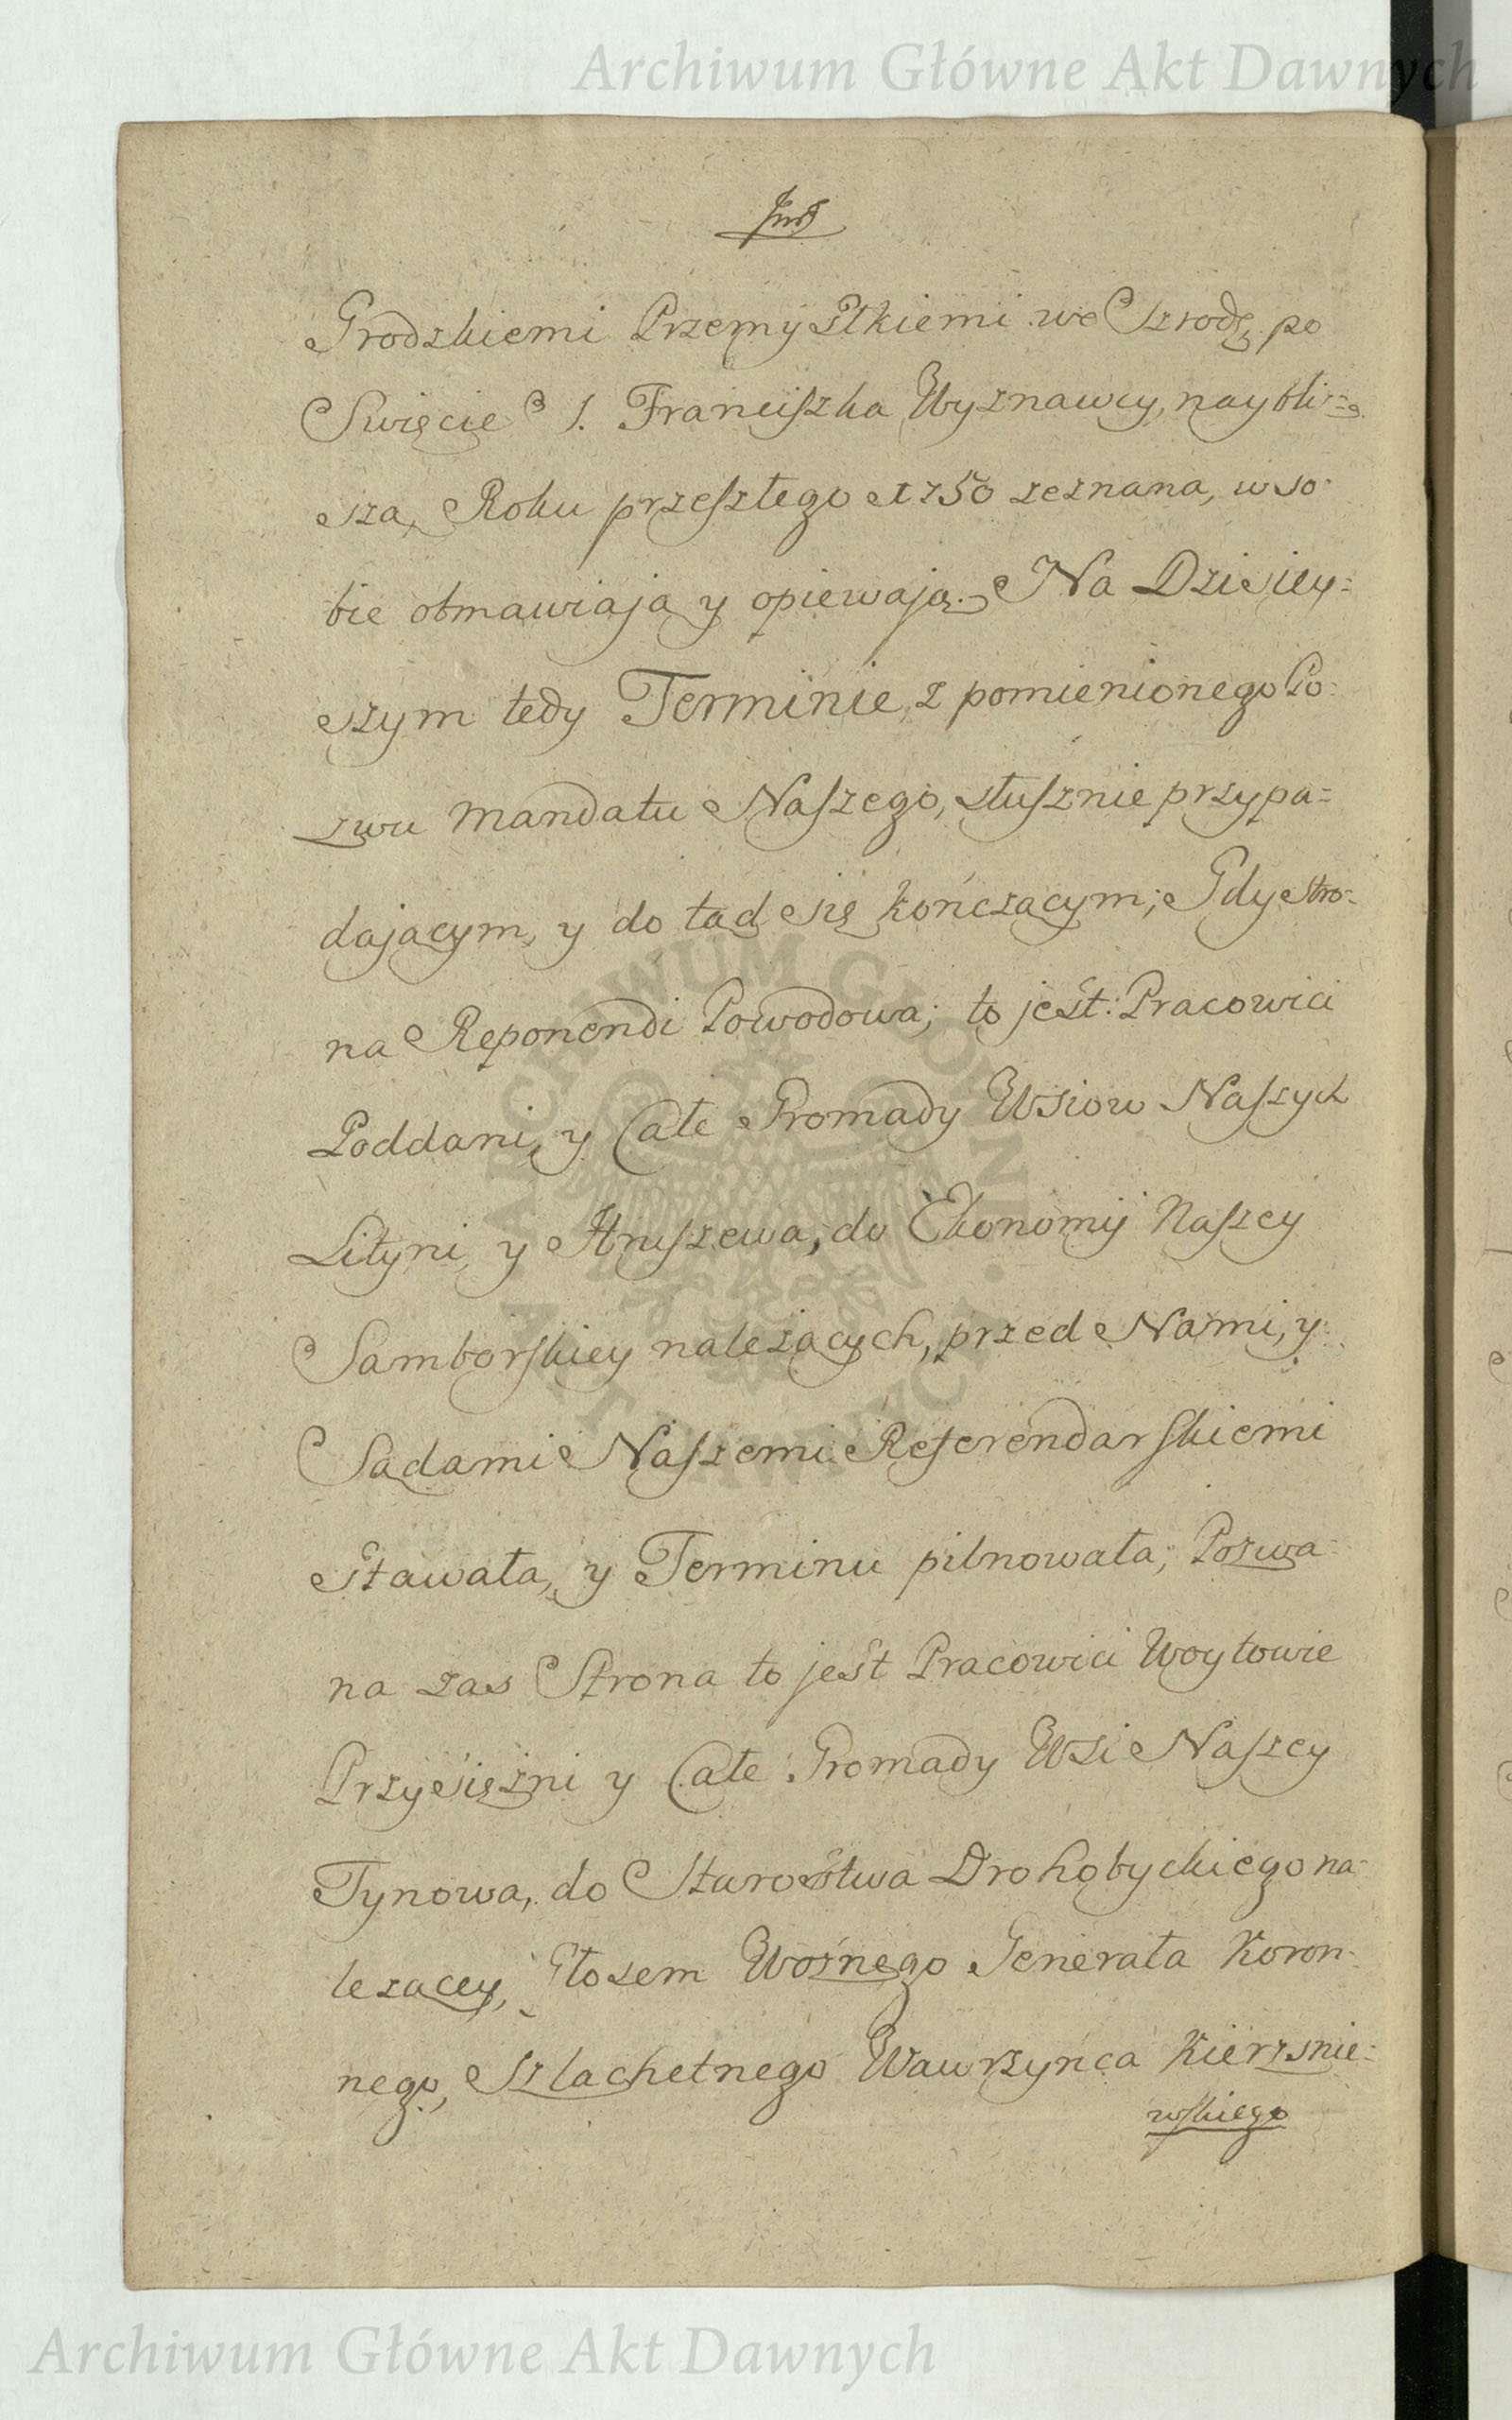 Archiwum Główne Akt Dawnych
Grodzkiemi Przemyslkiemi we Szrodę po
Swięcie S. Franciszka Wyznawcy, naybli=
sza, Roku przeszłego 1750 zeznana, w so=
bie obmawiaią y opiewaią. Na Dzisiey=
szym tedy Terminie, z pomienionego Po=
zwu Mandatu Naszego, słusznie przypa=
daiącym, y do tąd się kończącym; Gdy Stro=
na Reponendi Powodowa; to jest: Pracowici
Poddani, y Całe Gromady Wsiow Naszych
Lityni y Hruszewa, do Ekonomij Naszey
Samborskiey należących, przed Nami, y
Sądami Naszemi Referendarskiemi
Stawała, y Terminu pilnowała; Pozwa=
na zas Strona to jest Pracowici Woytowie
Przysiężni y Całe Gromady Wsi Naszey
Tynowa, do Starostwa Drohobyckiego na=
lezącey, Głosem Woźnego Generała Koron=
nego, Szlachetnego Wawrzyńca Kierzsnie=
wskiego
ARCHIWUM GŁÓWNE AKT DAWNYCH
Archiwum Główne Akt Dawnych